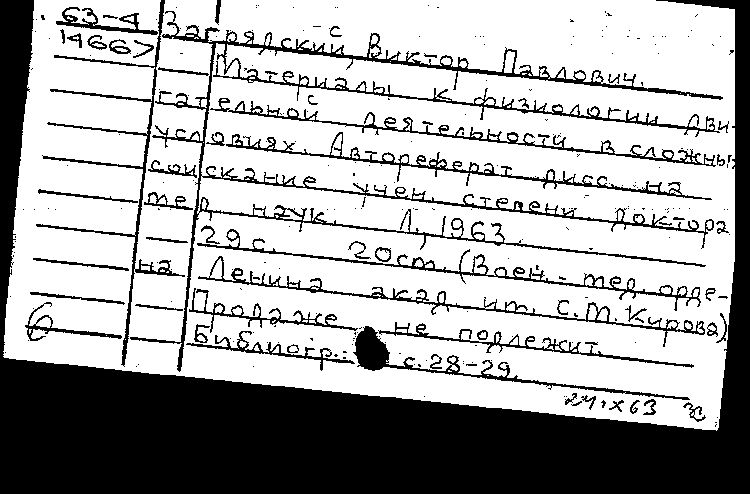 63-4
14667
Загрядский, Виктор Павлович.
Материалы к физиологии дви-
гательной деятельности в сложных
условиях. Автореферат дисс. на
соискание учен. степени доктора
мед наук. Л., 1963.
29 с. 20см. (Воен.-мед. орде-
на Ленина акад. им. С.М.Кирова)
Продаже не подлежит.
Библиогр.: с.28-29.
24.X63